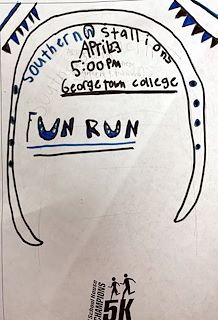 Southern Stallions
April 23
5:00 pm
Georgetown college
FUN RUN
School House
CHAMPIONS
5K